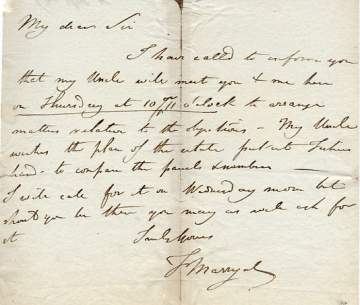 My dear Sir
I have called to inform you
that my Uncle will meet you & me here
on Thursday at 10 o'Clock to arrange
matters relative to the objections - My Uncle
wishes the plan of the estate put into
to compare the parcels & numbers
I will call for it on Wednesday morn but
should you be there you may as well ask for
it
F Marryat